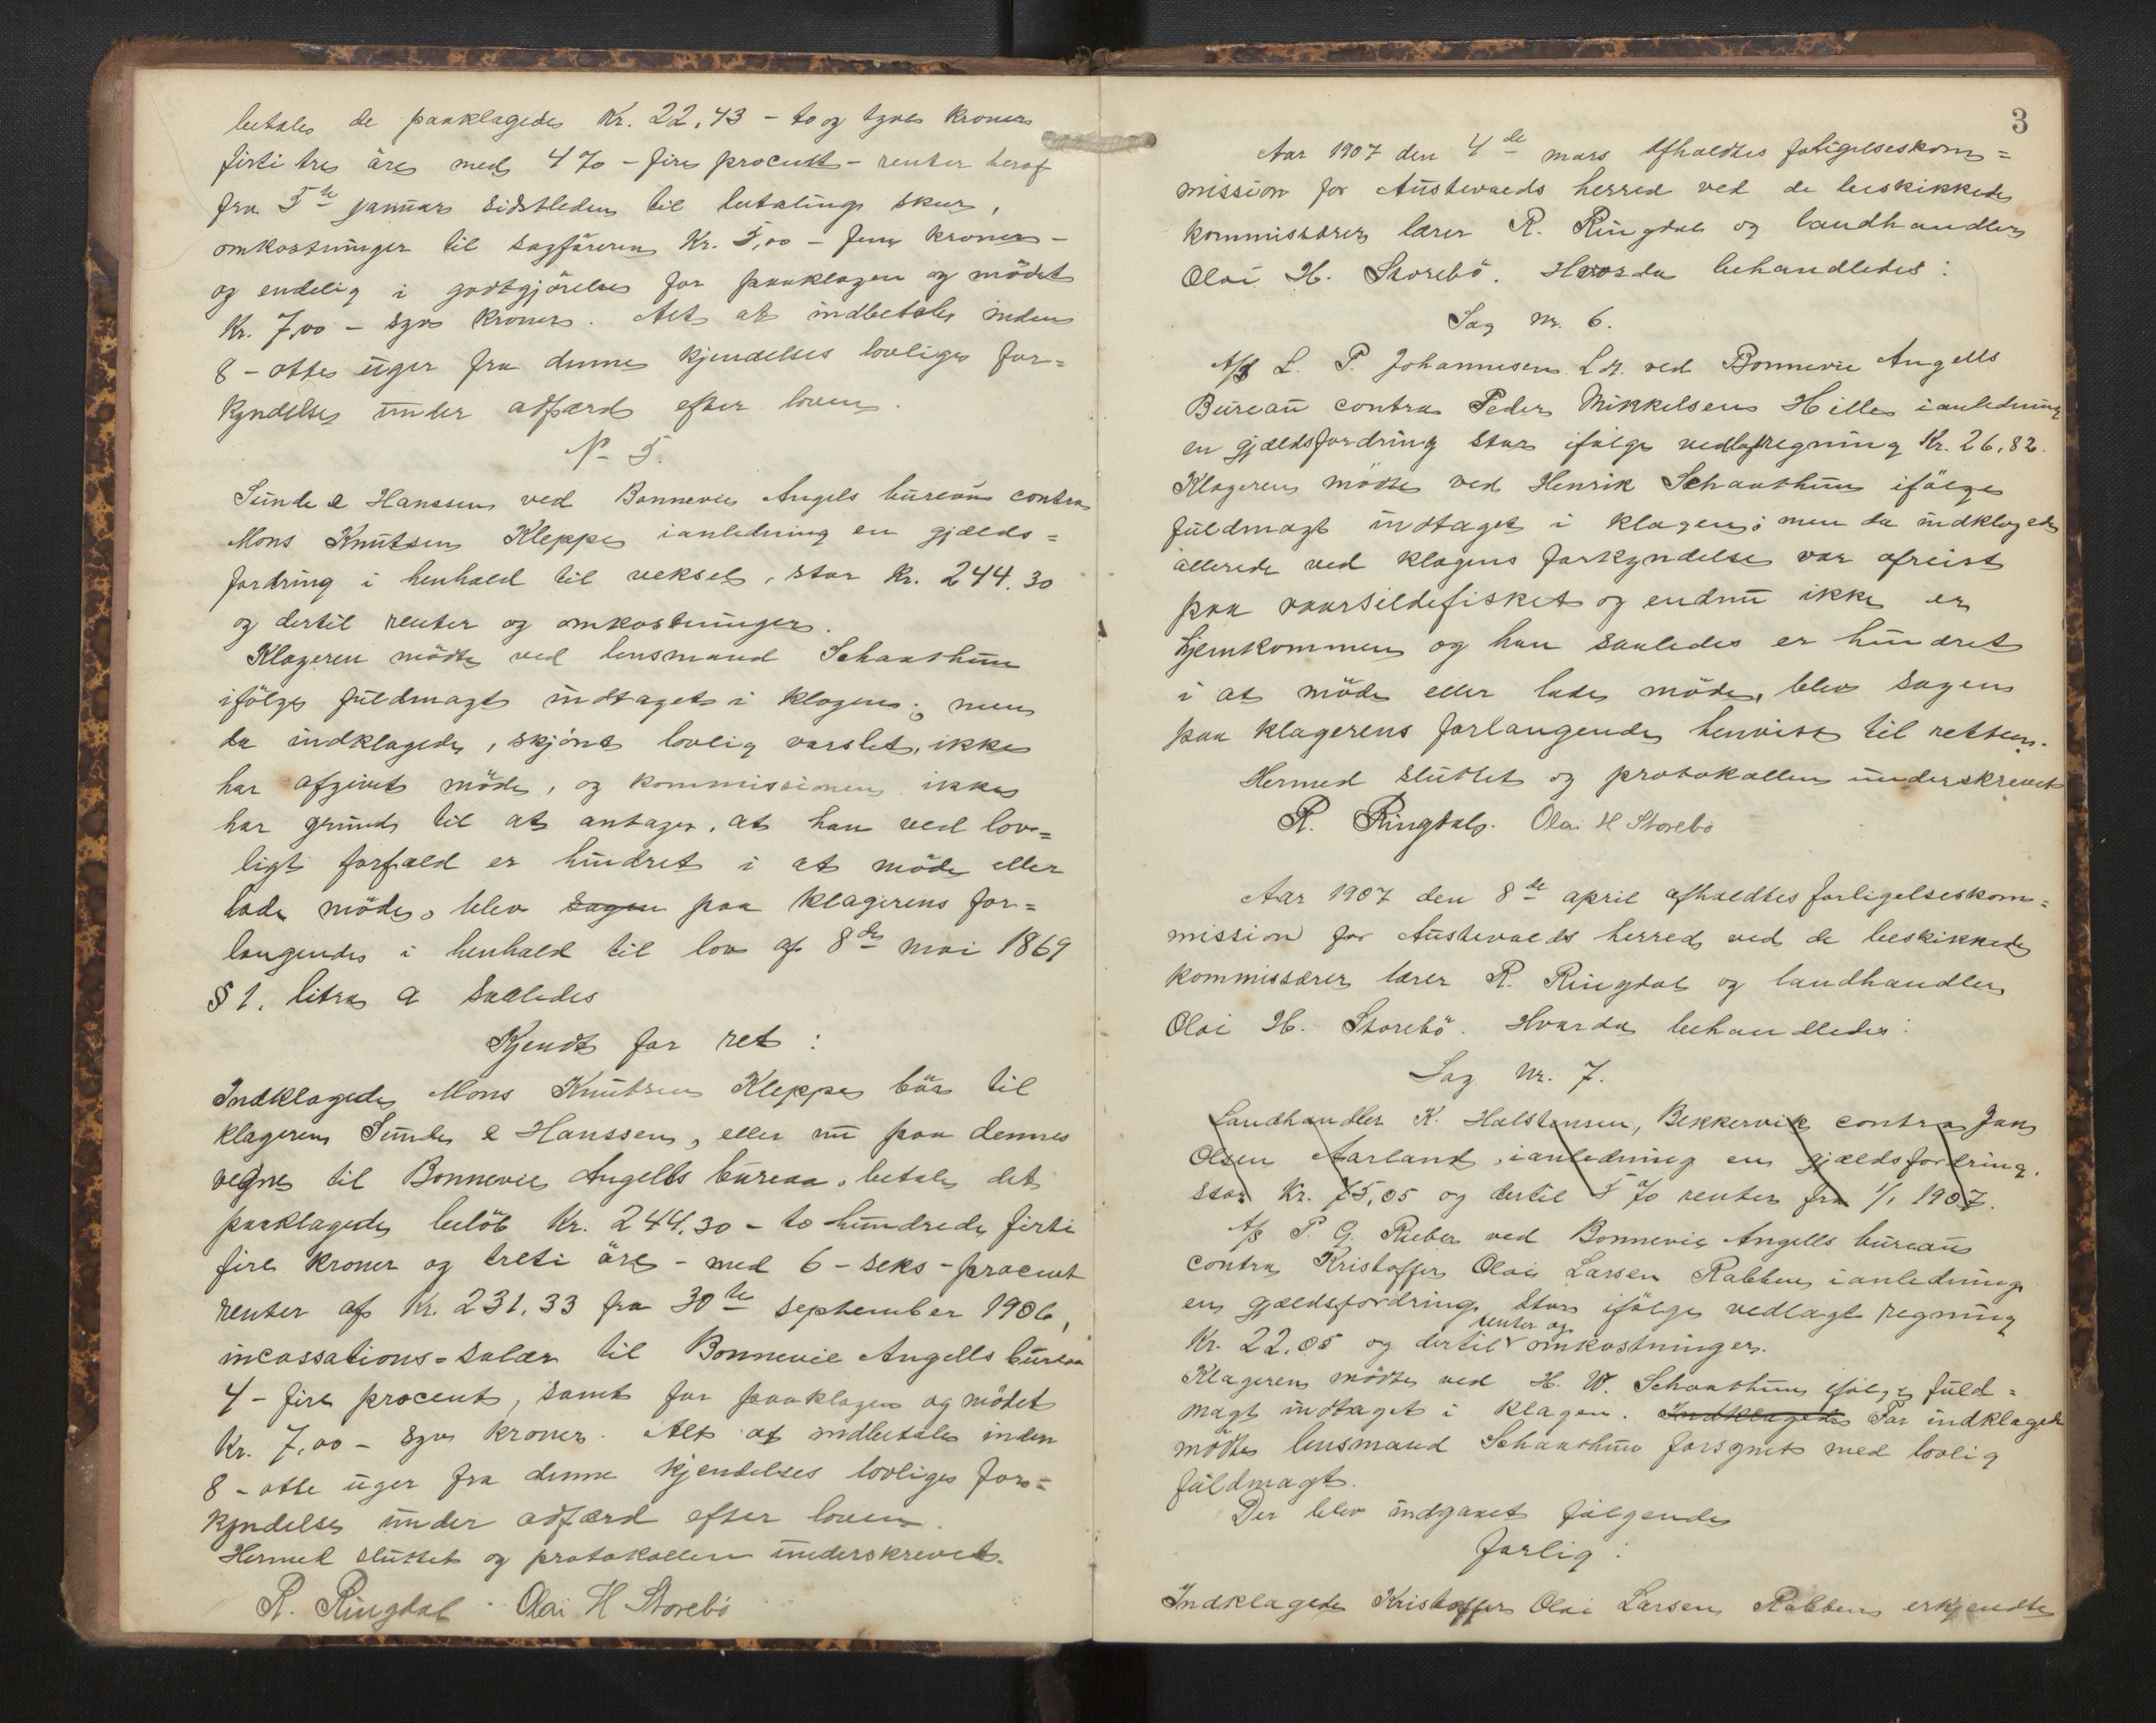 betale de paaklagede Kr. 22,43 - to og tyve kroner
firti tre öre med 4 % - fire procent - renter heraf
fra 5te januar sidstleden til betaling sker,
omkostninger til sagföreren Kr. 5,00 - fem kroner -
og endelig i godtgjörelse for paaklagen og mödet
Kr. 7,00 - syv kroner. Alt at indbetale inden
8 - otte uger fra denne kjendelses lovlige for=
kyndelse under adfærd efter loven.
No 5.
Sunde & Hanssen ved Bonnevie Angels bureau contra
Mons Knutsen Kleppe ianledning en gjælds=
fordring i henhold til veksel, stor Kr. 244.30
og dertil renter og omkostninger.
Klageren mödte ved lensmand Schanthun
ifölge fuldmagt indtaget i klagen; men
da indklagede, skjönt lovlig varslet, ikke
har afgivet möde, og kommissionen ikke
har grund til at antage, at han ved lov=
ligt forfald er hindret i at möde eller
lade möde, blev sagen paa klagerens for=
langende i henhold til lov af 8de mai 1869
§ 1. litra a saaledes
Kjendt for ret:
Indklagede Mons Knutsen Kleppe bör til
klageren Sunde & Hanssen, eller nu paa dennes
vegne til Bonnevie Angells bureau, betale det
paaklagede belöb Kr. 244,30 - to hundrede firti
fire kroner og treti öre - med 6 - seks - procent
renter af Kr. 231,33 fra 30te september 1906,
incassations=salær til Bonnevie Angells bureau
4 - fire procent, samt for paaklagen og mödet
Kr. 7,00 - syv kroner. Alt at indbetale inden
8 - otte uger fra denne kjendelses lovlige for=
kyndelse under adfærd efter loven.
Hermed sluttet og protokollen underskrevet.
R. Ringdal. Olai H Storebö
3
Aar 1907 den 4de mars afholdtes forligelseskom=
mission for Austevolds herred ved de beskikkede
kommissærer lærer R. Ringdal og landhandler
Olai H. Storebö. Hvorda behandledes:
Sag nr. 6.
A/S L. P. Johannesen Ld. ved Bonnevie Angells
Bureau contra Peder Mikkelsen Hille ianledning
en gjældsfordring stor ifölge vedlagt regning Kr. 26,82.
Klageren mödte ved Henrik Schanthun ifölge
fuldmagt indtaget i klagen; men da indklagede
allerede ved klagens forkyndelse var afreist
paa vaarsildefisket og endnu ikke er
hjemkommen og han saaledes er hindret
i at möde eller lade möde, blev sagen
paa klagerens forlangende henvist til retten.
Hermed sluttet og protokollen underskrevet
R. Ringdal. Olai H Storebö
Aar 1907 den 8de april afholdtes forligelseskom=
mission for Austevolds herred ved de beskikkede
kommissærer lærer R. Ringdal og landhandler
Olai H. Storebö. Hvorda behandledes:
Sag nr. 7.
Landhandler K. Halstensen, Bekkervik contra Jan
Olsen Aarland, ianledning en gjældsfordring,
stor Kr. 75,05 og dertil 5 % renter fra 1/1 1907.
A/S P. G. Rieber ved Bonnevie Angells bureau
contra Kristoffer Olai Larsen Rabben ianledning
en gjældsfordring, stor ifölge vedlagt regning
Kr. 22,05 og dertil renter og omkostninger.
Klageren mödte ved H. W. Schanthun ifölge fuld=
magt indtaget i klagen. Indklagede For indklagede
mödte lensmand Schanthun forsynet med lovlig
fuldmagt.
Der blev indgaaet fölgende
forlig:
Indklagede Kristoffer Olai Larsen Rabben erkjendte